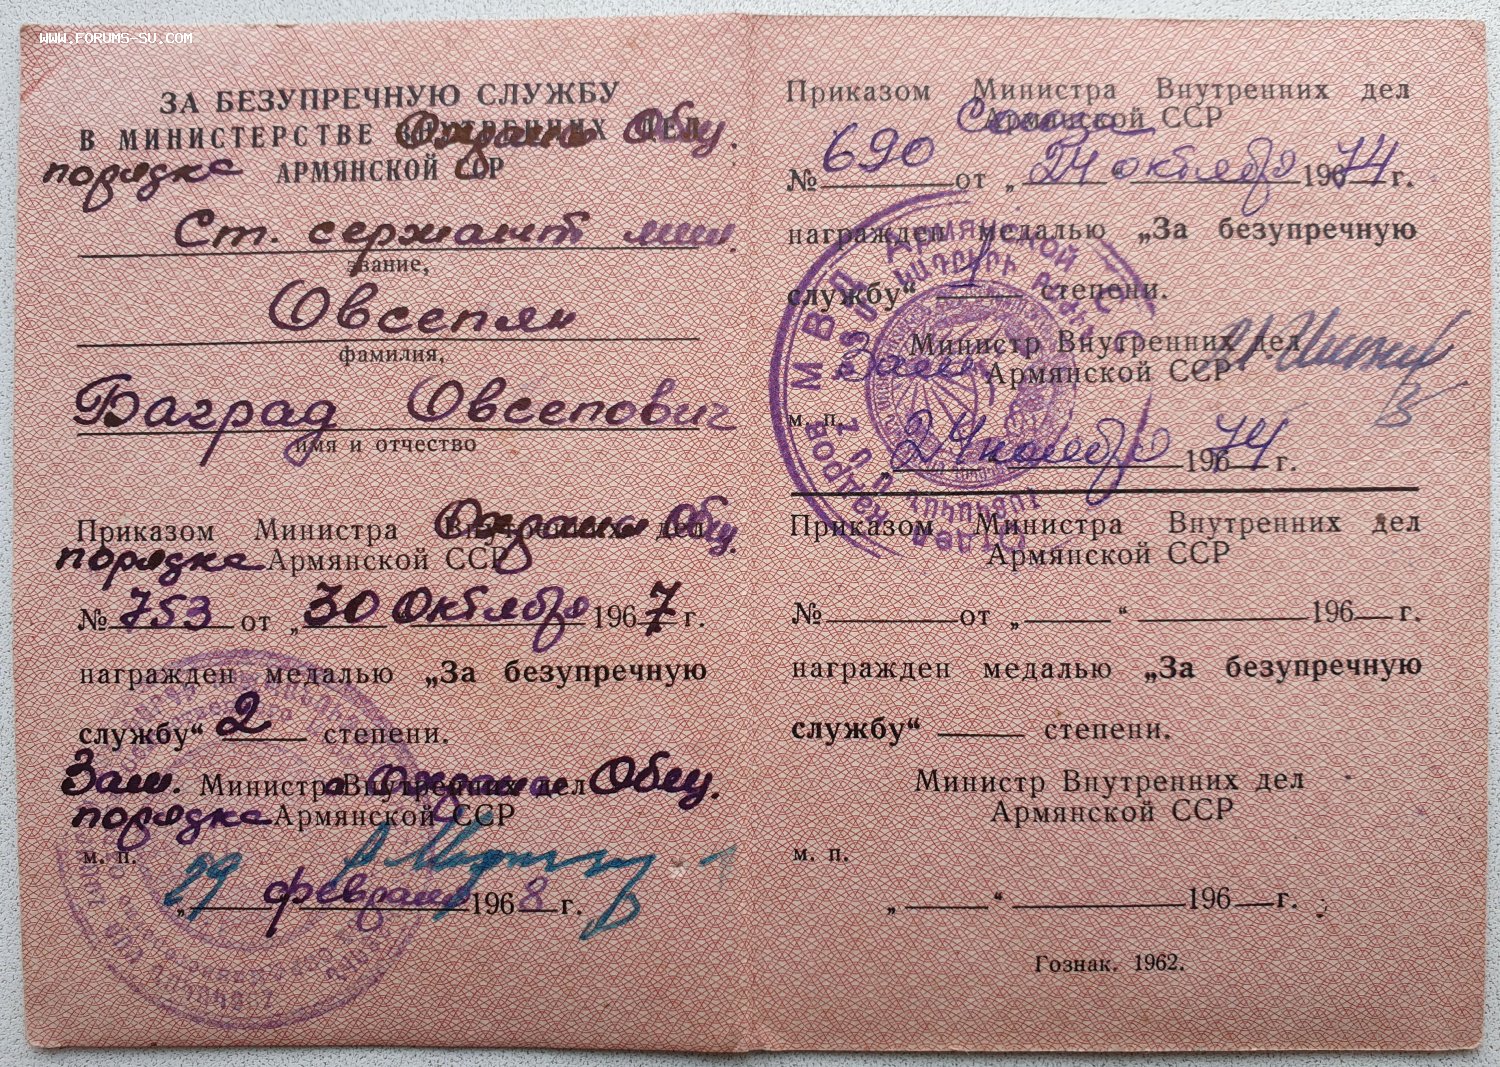 WWW.FORUMS-SU.COM
ЗА БЕЗУПРЕЧНУЮ СЛУЖБУ
В МИНИСТЕРСТВЕ ВНУТРЕННИХ ДЕЛ Охраны Общ.
порядка АРМЯНСКОЙ ССР
Ст. сержант мил.
звание,
Овсепян
фамилия,
Баград Овсепович
имя и отчество
Приказом Министра Внутренних дел Охраны Общ.
порядка Армянской ССР
№ 753 от „30 Октября 1967 г.
награжден медалью „За безупречную
службу“ 2 степени.
Зам. Министра Внутренних дел Охраны Общ.
порядка Армянской ССР
м. п.
„29 февраля 1968 г.
Приказом Министра Внутренних дел
Союза Армянской ССР
№ 690 от „24 “ октября 19674 г.
награжден медалью „За безупречную
службу“ 1 степени.
Министр Внутренних дел
Зам. Армянской ССР
м. п.
„24 ноября 19674 г.
МВД АРМЯНСКОЙ
кадров
Приказом Министра Внутренних дел
Армянской ССР
№ от „ “ 196 г.
награжден медалью „За безупречную
службу“ степени.
Министр Внутренних дел
Армянской ССР
м. п.
„ “ 196 г.
Гознак. 1962.